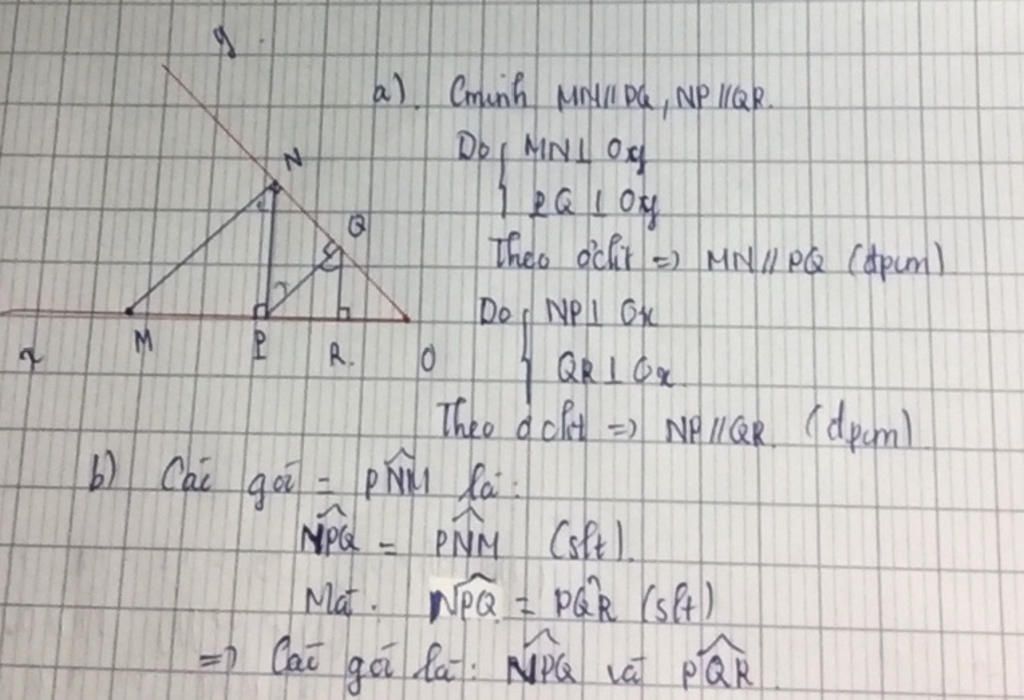 y
N
Q
M
P
R.
O
x
a). Cminh MN//PQ, NP//QR.
Do { MN ⊥ Oy
PQ ⊥ Oy
Theo đ/lí => MN//PQ (đpcm)
Do { NP ⊥ Ox
QR ⊥ Ox
Theo đ/lí => NP//QR. (đpcm)
b) Các góc = PNM là:
NPQ = PNM (slt).
Mà. NPQ = PQR (slt)
=> Các góc là: NPQ và PQR.